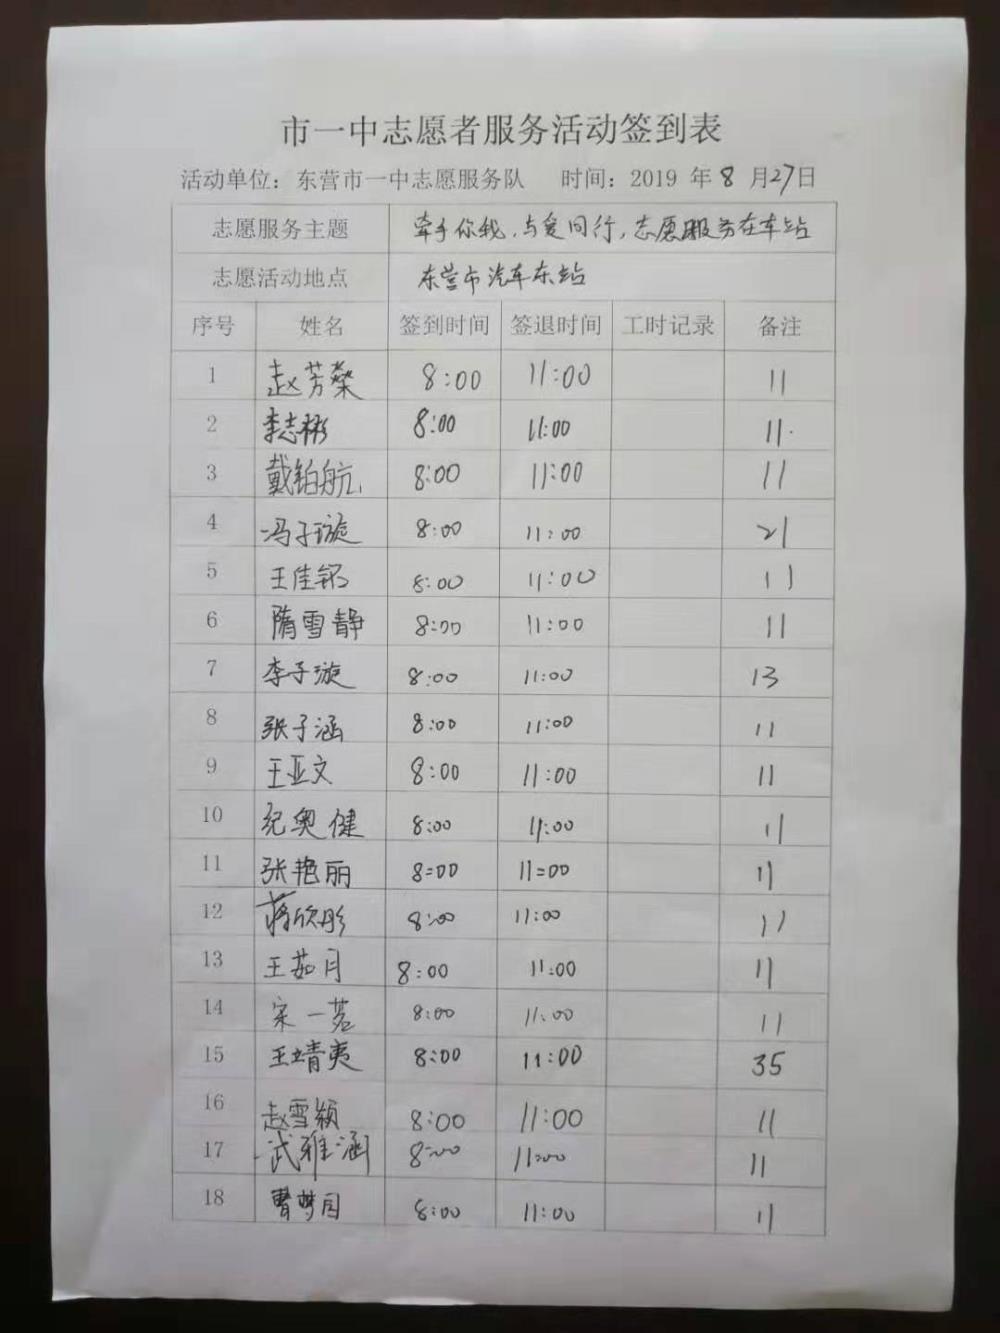 市一中志愿者服务活动签到表
活动单位：东营市一中志愿服务队 时间：2019 年 8 月 27 日
志愿服务主题 牵手你我，与爱同行，志愿服务在车站
志愿活动地点 东营市汽车东站
序号 姓名 签到时间 签退时间 工时记录 备注
1 赵芳燊 8:00 11:00 11
2 李志彬 8:00 11:00 11.
3 戴铂航 8:00 11:00 11
4 冯子璇 8:00 11:00 21
5 王佳铭 8:00 11:00 11
6 隋雪静 8:00 11:00 11
7 李子漩 8:00 11:00 13
8 张子涵 8:00 11:00 11
9 王亚文 8:00 11:00 11
10 纪奥健 8:00 11:00 11
11 张艳丽 8:00 11:00 11
12 蒋欣彤 8:00 11:00 11
13 王茹月 8:00 11:00 11
14 宋一茗 8:00 11:00 11
15 王靖夷 8:00 11:00 35
16 赵雪颖 8:00 11:00 11
17 武雅涵 8:00 11:00 11
18 曹梦 8:00 11:00 11